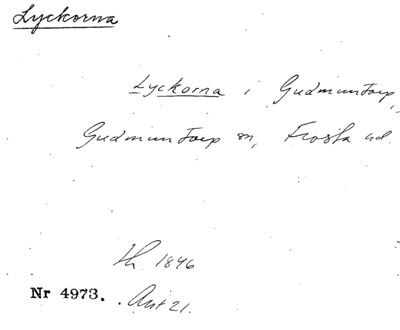 Lyckorna
Lyckorna i Gudmuntorp,
Gudmuntorp sn, Frosta hd.
1846
Nr 4973. Ant 21.